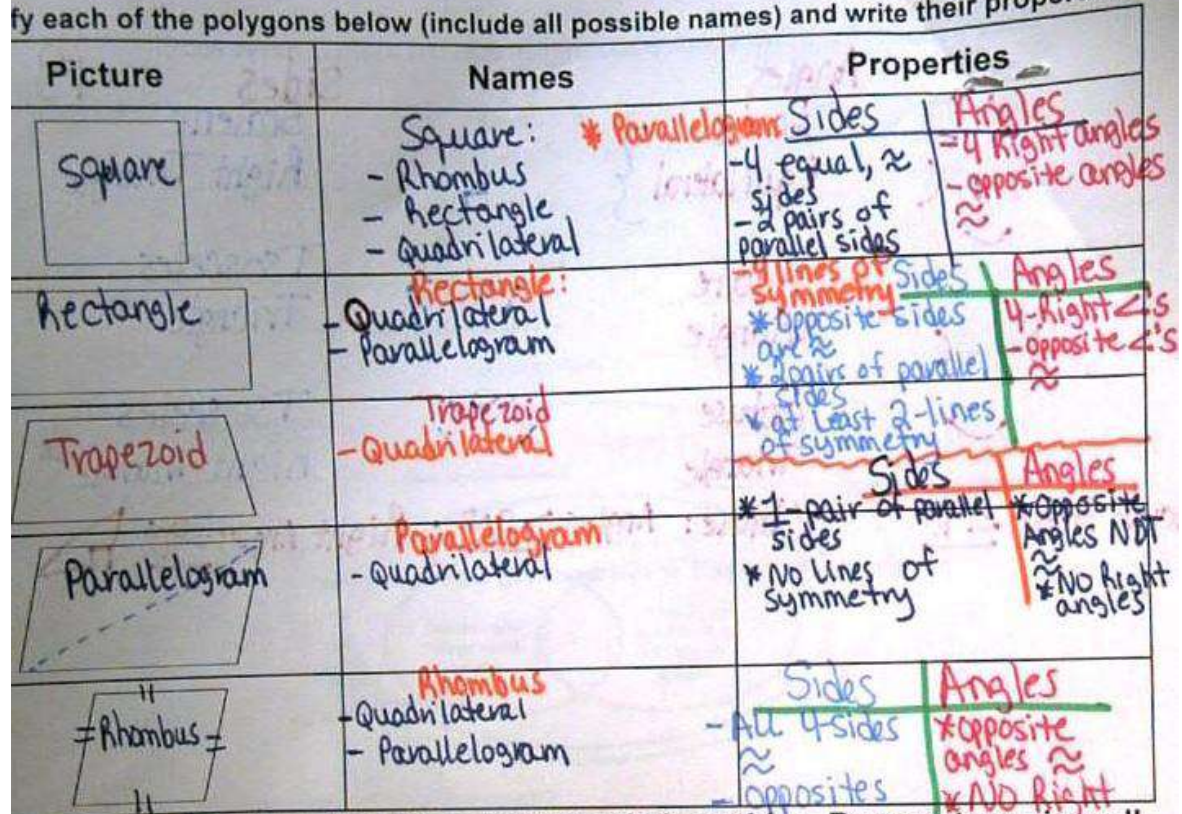 fy each of the polygons below (include all possible names) and write their
Picture
Names
Properties
Square
Square:
* Parallelograms
- Rhombus
- Rectangle
- Quadrilateral
Sides
-4 equal, ≈
sides
-2 pairs of
parallel sides
-4 lines of
symmetry
Angles
-4 Right angles
- opposite angles
≈
Rectangle
Rectangle:
- Quadrilateral
- Parallelogram
Sides
*opposite sides
are ≈
* 2pairs of parallel
sides
* at least 2-lines
of symmetry
Angles
4-Right ∠'s
- opposite ∠'s
≈
Trapezoid
Trapezoid
- Quadrilateral
Sides
*1-pair of parallel
sides
* No lines of
symmetry
Angles
*Opposite
Angles NOT
≈
*No Right
angles
Parallelogram
Parallelogram
- Quadrilateral
Rhombus
Rhombus
-Quadrilateral
- Parallelogram
Sides
- All 4-sides
≈
- opposites
Angles
*opposite
angles ≈
*No Right